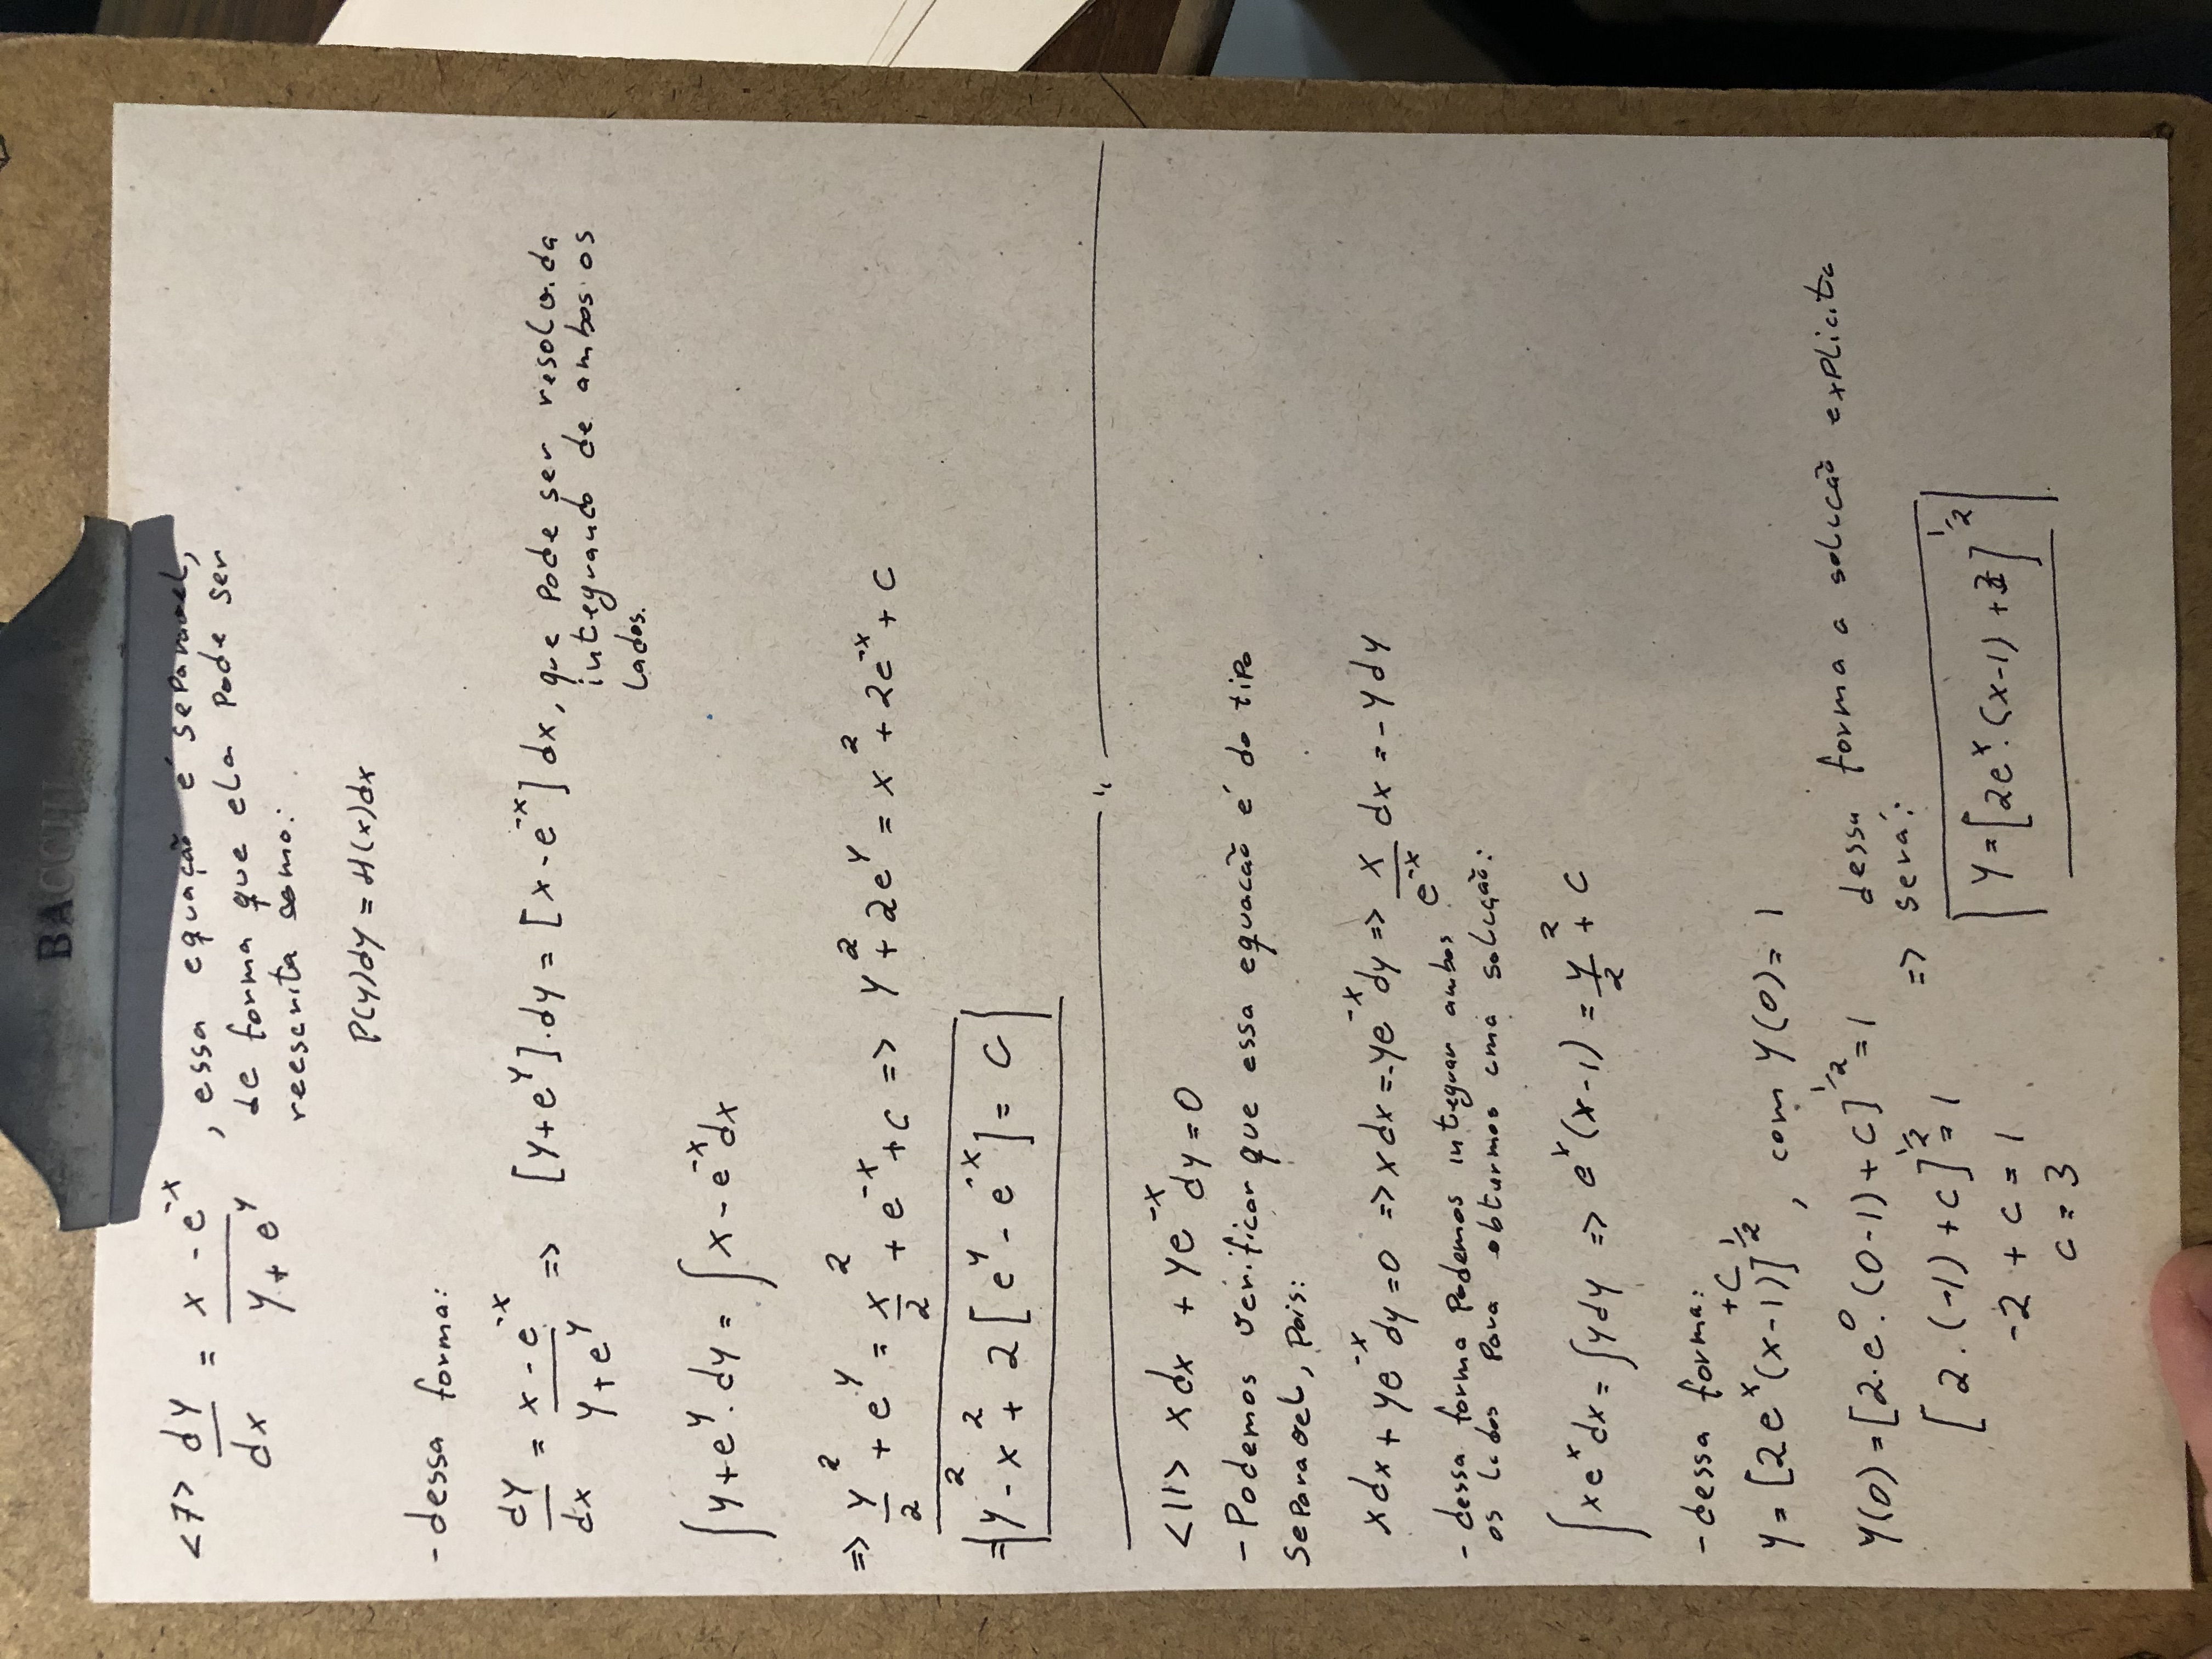 BACCHI
<7> dy/dx = (x - e^-x)/(y + e^y), essa equação é separavel,
de forma que ela pode ser
reescrita como:
P(y)dy = H(x)dx
- dessa forma:
dy/dx = (x - e^-x)/(y + e^y) => [y+e^y].dy = [x-e^-x]dx, que pode ser resolvida
integrando de ambos os
lados.
∫y+e^y.dy = ∫x-e^-x dx
=> y²/2 + e^y = x²/2 + e^-x + c => y² + 2e^y = x² + 2e^-x + c
= y² - x² + 2[e^y - e^-x] = c
<11> xdx + ye^-x dy = 0
- Podemos verificar que essa equacão é do tipo
separavel, pois:
xdx + ye^-x dy = 0 => xdx = -ye^-x dy => x/e^-x dx = -ydy
- dessa forma podemos integrar ambos
os lados para obturmos uma solução:
∫xe^x dx = ∫ydy => e^x(x-1) = y²/2 + c
- dessa forma:
y = [2e^x(x-1)+c]^1/2, com y(0) = 1
y(0) = [2.e^0.(0-1)+c]^1/2 = 1
[2.(-1)+c]^1/2 = 1
-2 + c = 1
c = 3
dessa forma a solucão explicita
=> será:
y = [2e^x.(x-1)+3]^1/2